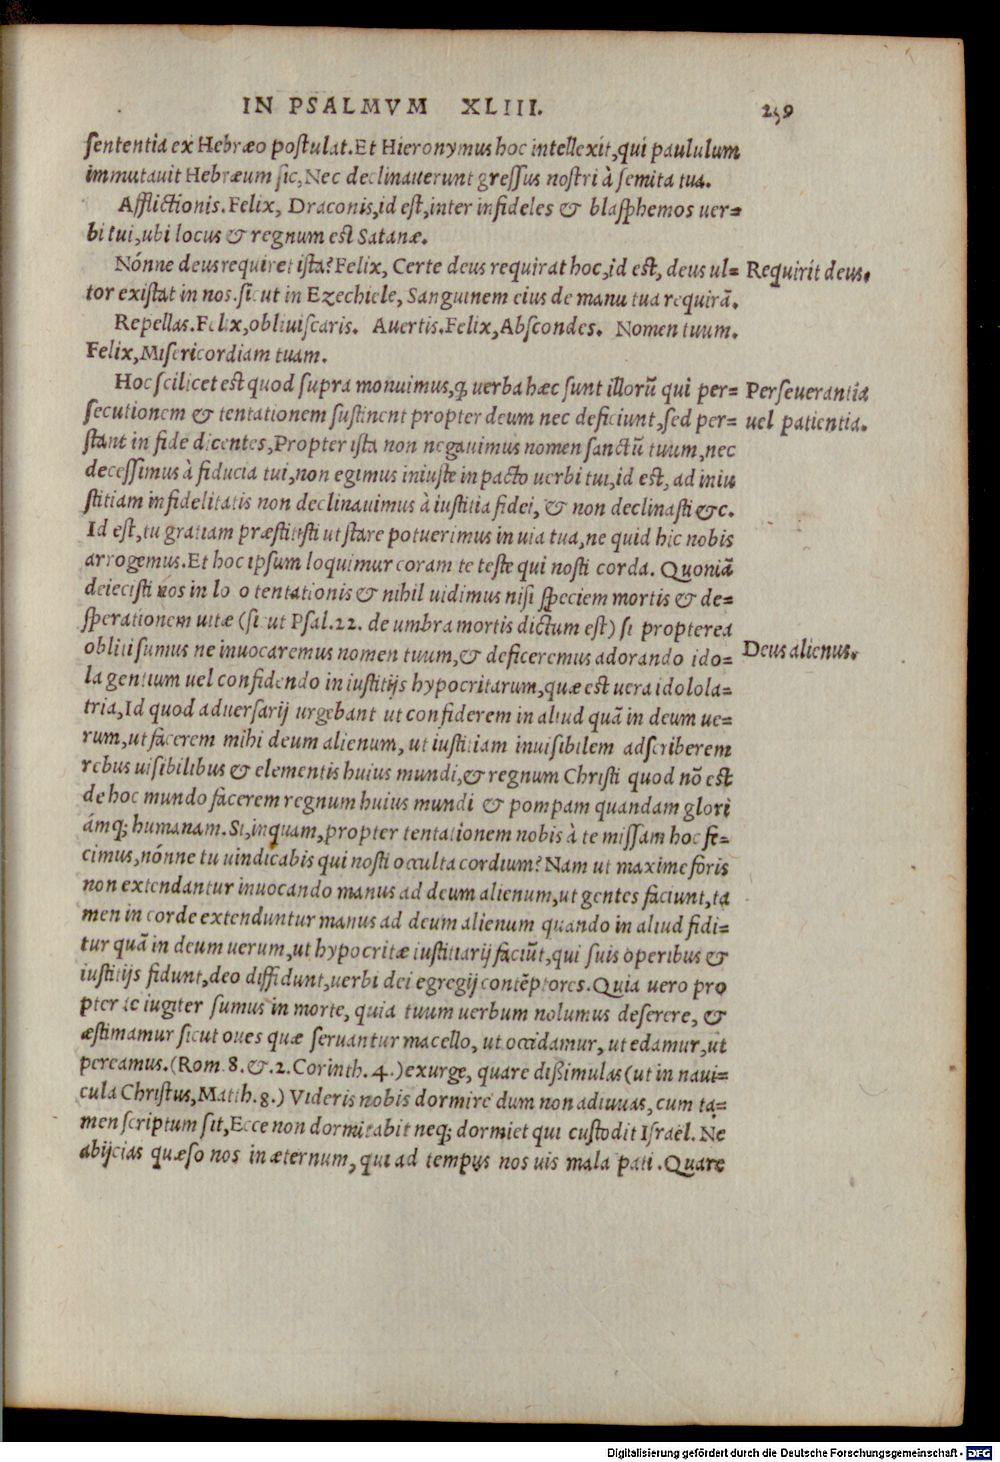 IN PSALMVM XLIII. 259
sententia ex Hebræo postulat. Et Hieronymus hoc intellexit, qui paululum
immutauit Hebræum sic, Nec declinauerunt gressus nostri à semita tua.
Afflictionis. Felix, Draconis, id est, inter infideles & blasphemos uer=
bi tui, ubi locus & regnum est Satanæ.
Nónne deus requiret ista? Felix, Certe deus requirat hoc, id est, deus ul= Requirit deus.
tor existat in nos. sicut in Ezechiele, Sanguinem eius de manu tua requirā.
Repellas. Felix, obliuiscaris. Auertis. Felix, Abscondes. Nomen tuum.
Felix, Misericordiam tuam.
Hoc scilicet est quod supra monuimus, ꝙ uerba hæc sunt illorū qui per= Perseuerantia
secutionem & tentationem sustinent propter deum nec deficiunt, sed per= uel patientia.
stant in fide dicentes, Propter ista non negauimus nomen sanctū tuum, nec
decessimus à fiducia tui, non egimus iniuste in pacto uerbi tui, id est, ad iniu
stitiam infidelitatis non declinauimus à iustitia fidei, & non declinasti &c.
Id est, tu gratiam præstitisti ut stare potuerimus in uia tua, ne quid hic nobis
arrogemus. Et hoc ipsum loquimur coram te teste qui nosti corda. Quoniā
deiecisti nos in lo o tentationis & nihil uidimus nisi speciem mortis & de=
sperationem uitæ (sicut Psal. 22. de umbra mortis dictum est) si propterea
obliti sumus ne inuocaremus nomen tuum, & deficeremus adorando ido= Deus alienus.
la gentium uel confidendo in iustitijs hypocritarum, quæ est uera idolola=
tria, Id quod aduersarij urgebant ut confiderem in aliud quā in deum ue=
rum, ut facerem mihi deum alienum, ut iustitiam inuisibilem adscriberem
rebus uisibilibus & elementis huius mundi, & regnum Christi quod nō est
de hoc mundo facerem regnum huius mundi & pompam quandam glori
ámq; humanam. Si, inquam, propter tentationem nobis à te missam hoc fe=
cimus, nónne tu uindicabis qui nosti occulta cordium? Nam ut maxime foris
non extendantur inuocando manus ad deum alienum, ut gentes faciunt, ta
men in corde extenduntur manus ad deum alienum quando in aliud fidi=
tur quā in deum uerum, ut hypocritæ iustitiarij faciūt, qui suis operibus &
iustitijs fidunt, deo diffidunt, uerbi dei egregij contēptores. Quia uero pro
pter te iugiter sumus in morte, quia tuum uerbum nolumus deserere, &
æstimamur sicut oues quæ seruantur macello, ut occidamur, ut edamur, ut
pereamus. (Rom. 8. &. 2. Corinth. 4.) exurge, quare dißimulas (ut in naui=
cula Christus, Matth. 8.) Videris nobis dormire dum non adiuuas, cum ta=
men scriptum sit, Ecce non dormitabit neq; dormiet qui custodit Israël. Ne
abijcias quæso nos in æternum, qui ad tempus nos uis mala pati. Quare
Digitalisierung gefördert durch die Deutsche Forschungsgemeinschaft - DFG